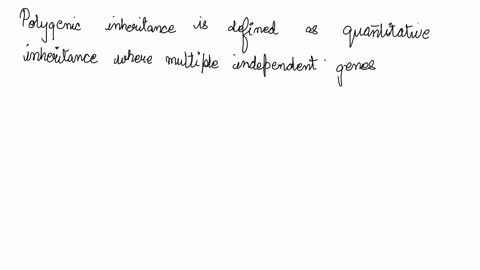 Polygenic inheritance is defined as quantitative
inheritance where multiple independent genes